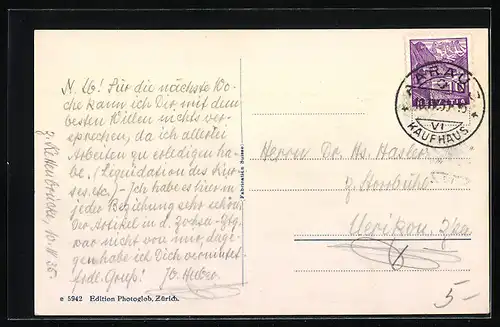 N. Lb! Für die nächste Wo-
che kann ich Dir mit dem
besten Willen nichts ver-
sprechen, da ich allerlei
Arbeiten zu erledigen ha-
be. (Liquidation des Kur-
ses etc.) - Ich habe es hier in
jeder Beziehung sehr schön.
Der Artikel in d. Zchsee-Ztg.
war nicht von mir, dage-
gen habe ich Dich vermutet.
frdl. Gruß! Jb. Huber
z. Kettenbrücke, 10. IV 35.
Fabrication Suisse.
AARAU
10.IV.35
VI
KAUFHAUS
10
Herrn Dr. Hs. Hasler
z. Hornbühl
Uerikon, Zch.
5-
e 5942 Edition Photoglob, Zürich.